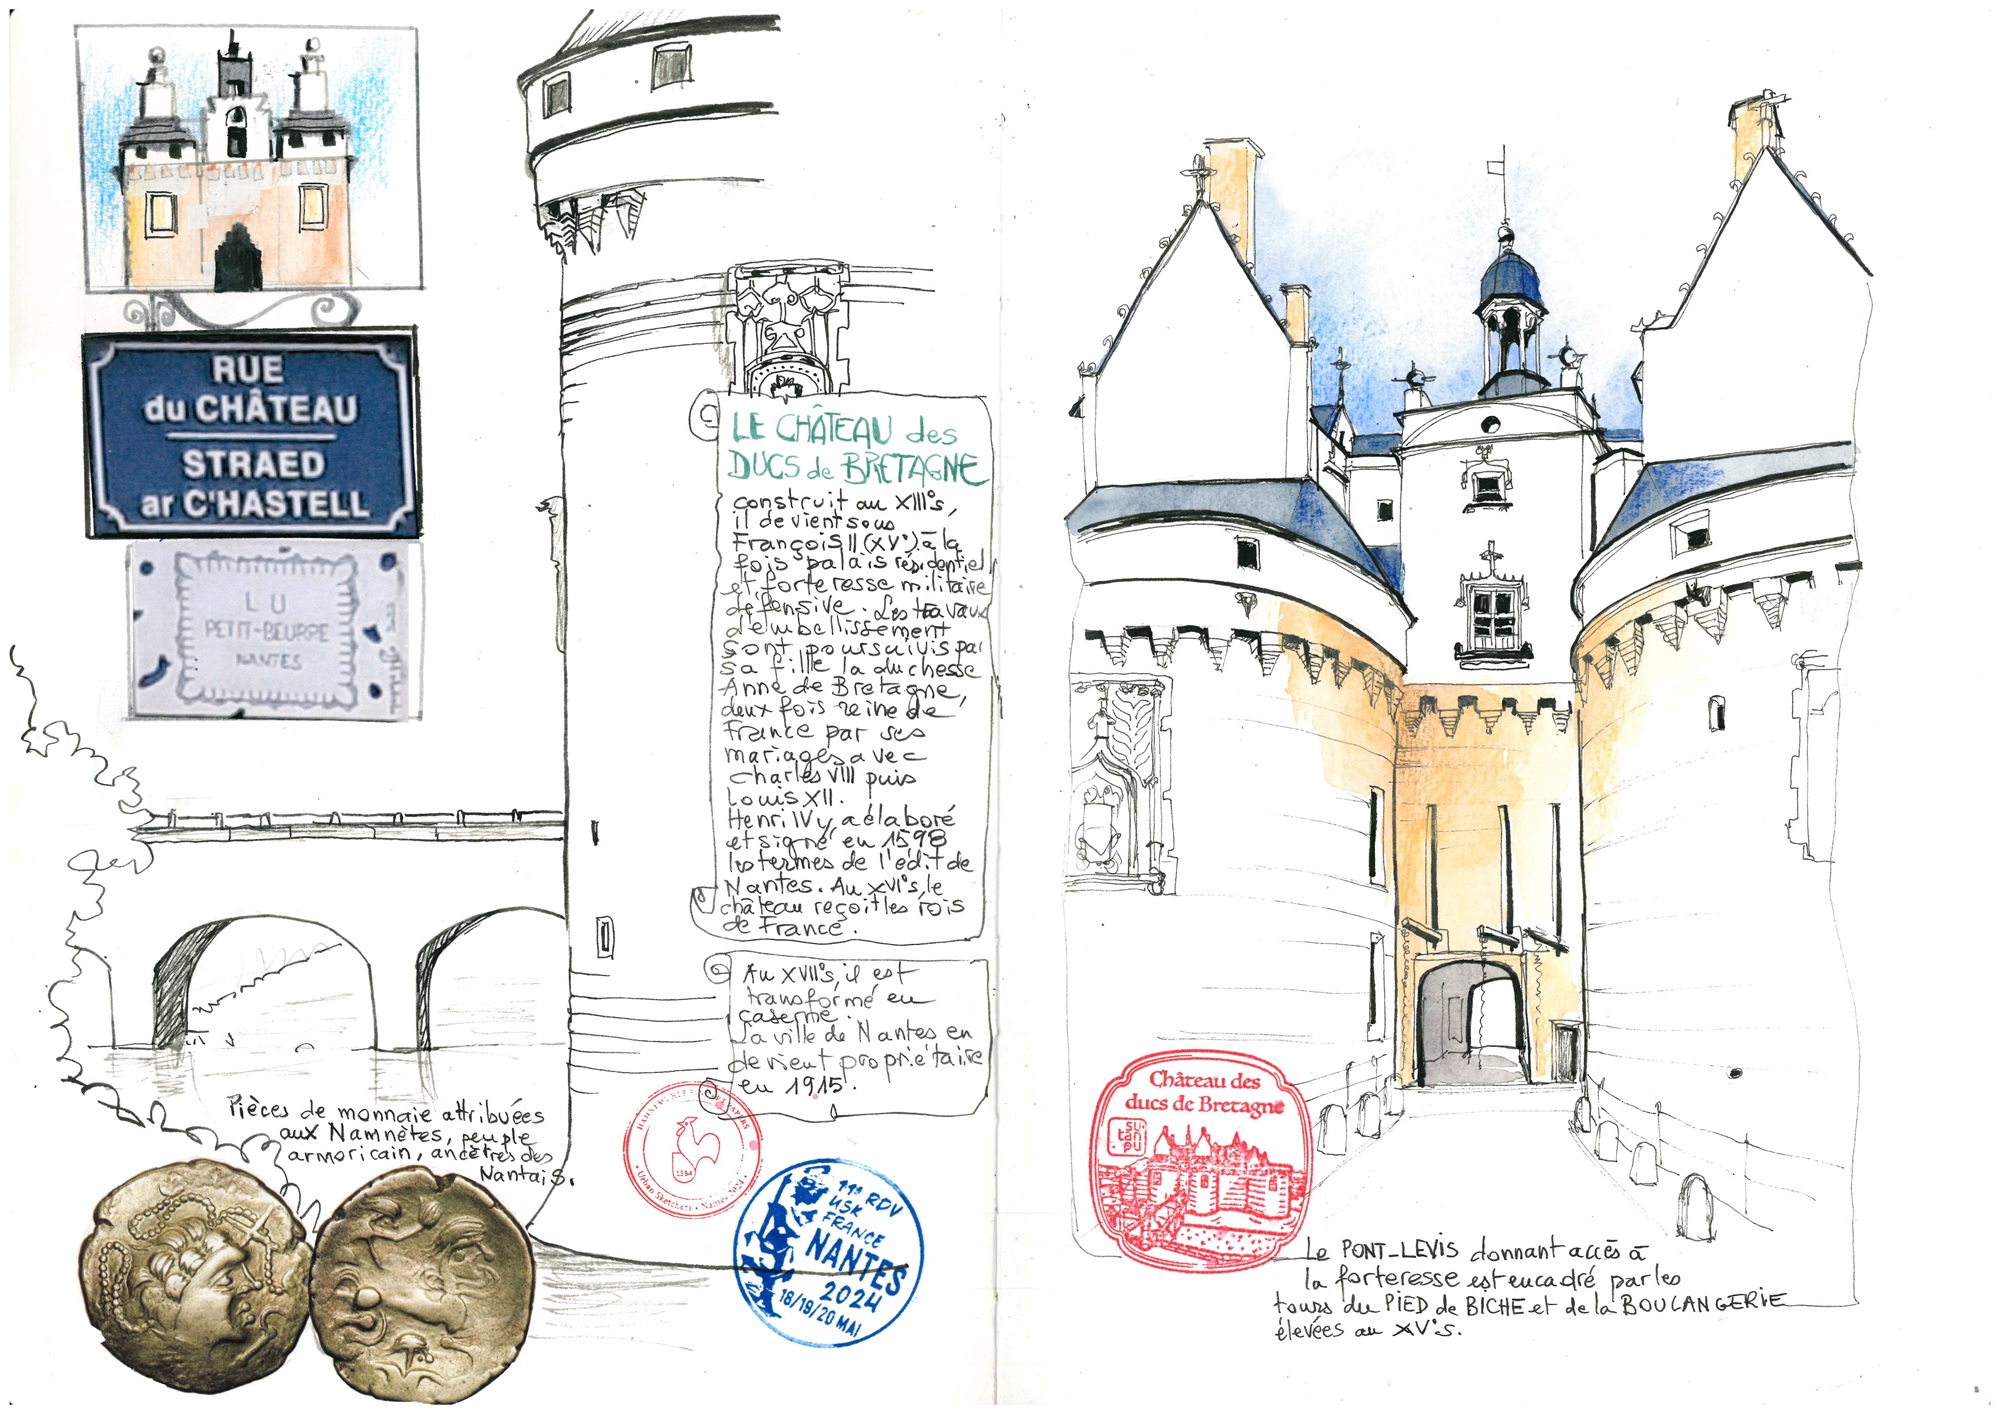 RUE
du CHÂTEAU
STRAED
ar C'HASTELL
LU
PETIT-BEURRE
NANTES
LE CHÂTEAU des
DUCS de BRETAGNE
construit au XIII°s,
il devient sous
François II (XV°) à la
fois palais résidentiel
et forteresse militaire
défensive. Les travaux
d'embellissement
sont poursuivis par
sa fille la duchesse
Anne de Bretagne,
deux fois reine de
France par ses
mariages avec
Charles VIII puis
Louis XII.
Henri IV y a élaboré
et signé en 1598
les termes de l'edit de
Nantes. Au XVI°s, le
château reçoit les rois
de France.
Au XVII°s, il est
transformé en
caserne.
La ville de Nantes en
devient propriétaire
en 1915.
Pièces de monnaie attribuées
aux Namnètes, peuple
armoricain, ancêtres des
Nantais.
Urban Sketchers • Nantes 2024
11e RDV
USK
FRANCE
NANTES
2024
18/19/20 MAI
Château des
ducs de Bretagne
su
tan
pu
Le PONT-LEVIS donnant accès à
la forteresse est encadré par les
tours du PIED de BICHE et de la BOULANGERIE
élevées au XV°s.